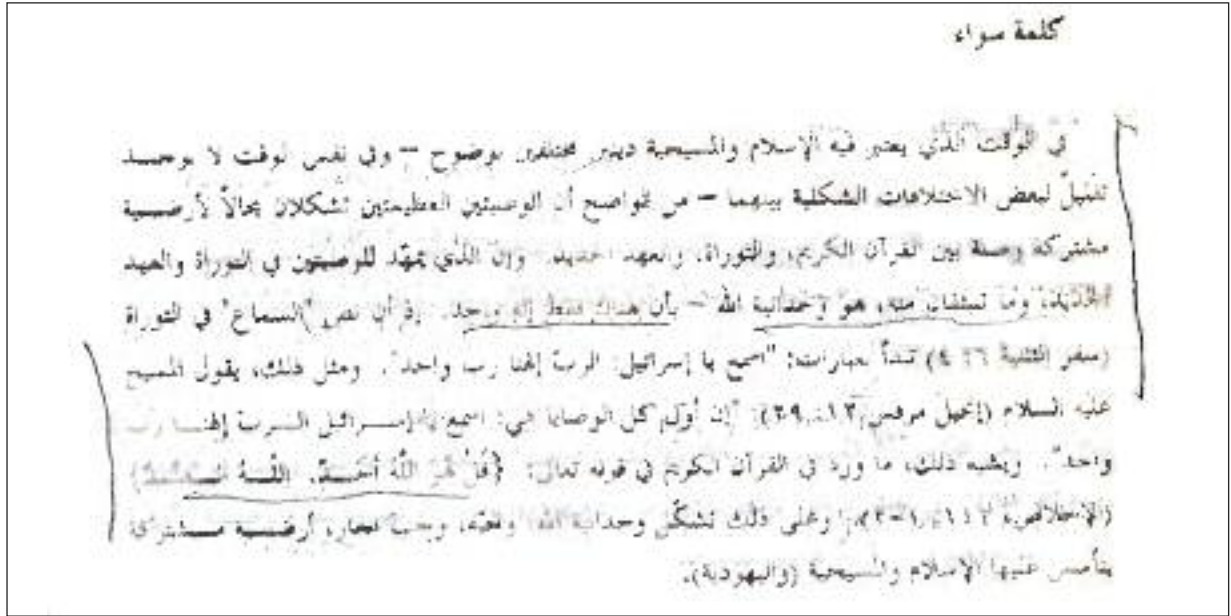 كلمة سواء
في الوقت الذي يعتبر فيه الإسلام والمسيحية دينين مختلفين بوضوح – وفي نفس الوقت لا يوجد
تقليلٌ لبعض الاختلافات الشكلية بينهما – من الواضح أن الوصيتين العظيمتين تشكلان مجالاً لأرضية
مشتركة وصلة بين القرآن الكريم، والتوراة، والعهد الجديد. وإن الذي يمهّد للوصيتين في التوراة والعهد
الجديد، وما تنبثقان منه، هو وحدانية الله – بأن هناك فقط إله واحد. إذ أن نص "السماع" في التوراة
(سفر التثنية ٦: ٤) تبدأ بعبارات: "اسمع يا إسرائيل: الربّ إلهنا رب واحد". ومثل ذلك، يقول المسيح
عليه السلام (إنجيل مرقس ١٢: ٢٩): "إن أول كل الوصايا هي: اسمع يا إسرائيل الرب إلهنا رب
واحد". ويشبه ذلك، ما ورد في القرآن الكريم في قوله تعالى: {قُلْ هُوَ اللَّهُ أَحَدٌ. اللَّهُ الصَّمَدُ}
(الإخلاص، ١١٢: ١-٢). وعلى ذلك تشكّل وحدانية الله، ومحبّته، ومحبة الجار، أرضية مشتركة
يتأسس عليها الإسلام والمسيحية (واليهودية).